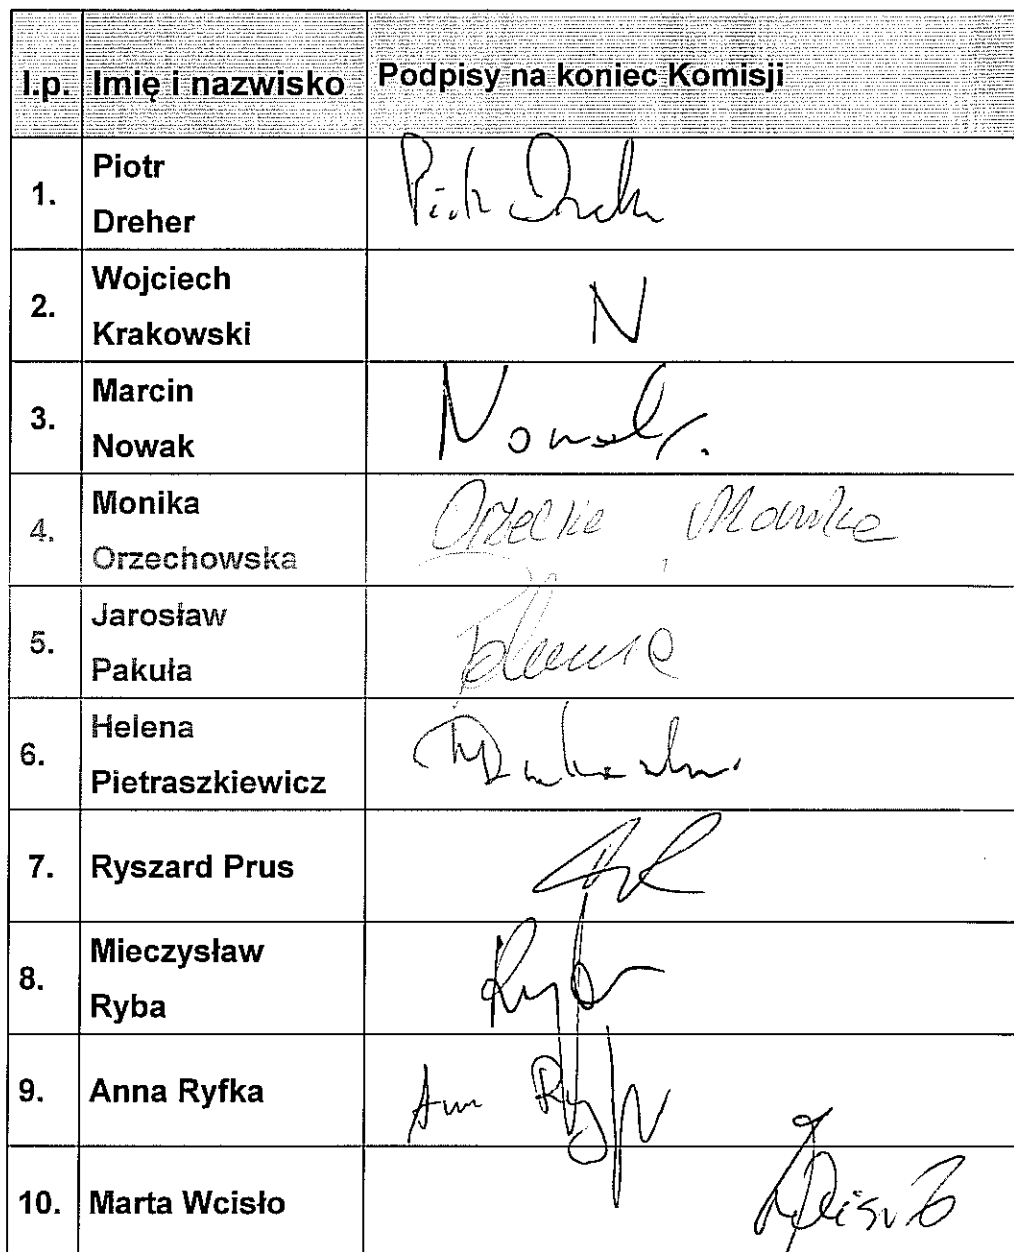 l.p. Imię i nazwisko Podpisy na koniec Komisji
1. Piotr
Dreher
2. Wojciech
Krakowski
N
3. Marcin
Nowak
Nowak.
4. Monika
Orzechowska
5. Jarosław
Pakuła
6. Helena
Pietraszkiewicz
7. Ryszard Prus
8. Mieczysław
Ryba
Ryba
9. Anna Ryfka
10. Marta Wcisło